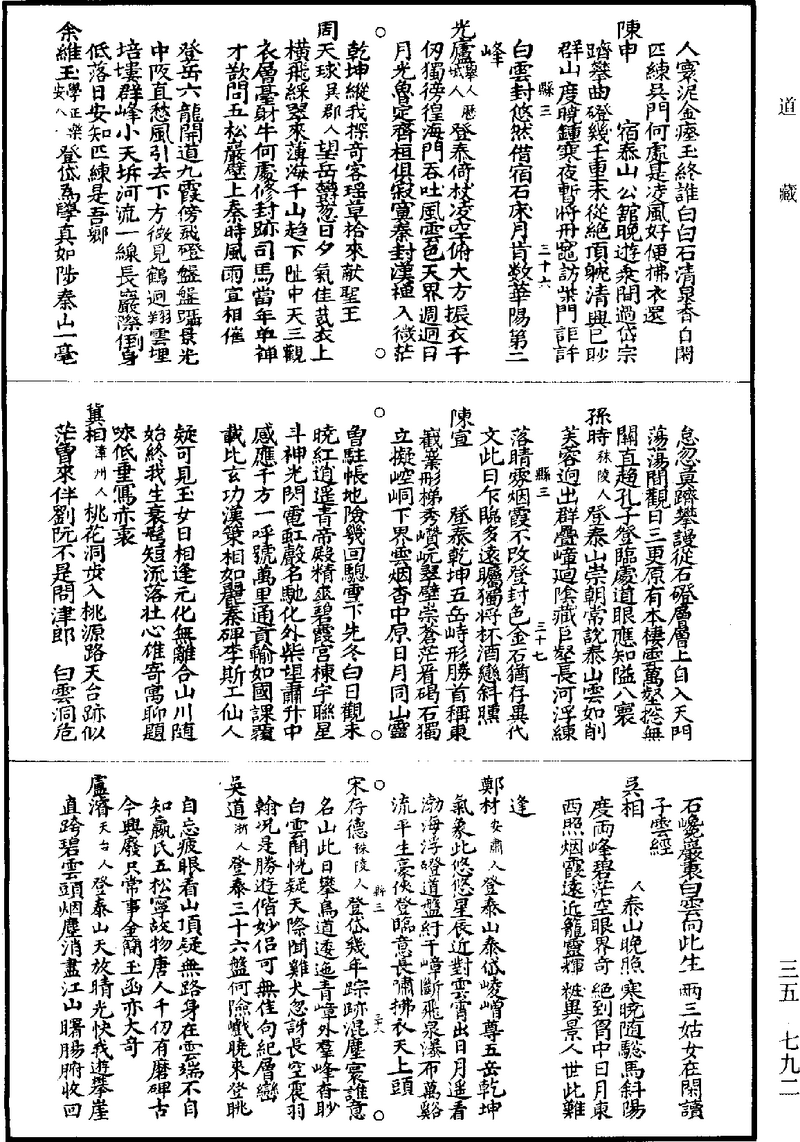 道藏
三五 七九二
人寰泥金瘞玉終誰白白石清泉杳自閑
匹練吳門何處是凌風好便拂衣還
陳申 宿泰山公館晚遊泉間過岱宗
躋攀曲磴幾千重未從絕頂舒清興已眇
群山度曉鐘寒夜暫將丹竈訪柴門詎許
縣三 三十六
白雲封悠然借宿石床月肯數華陽第二
峰
光廬城人舉人歷 登泰倚杖凌空俯大方振衣千
仞獨徬徨海門吞吐風雲色天界週迴日
月光魯定齊桓俱寂寞秦封漢禪入微茫
乾坤縱我探奇客瑤草拾來献聖王
周天球吳郡人望岳欝葱日夕氣佳哉衣上
橫飛綵翠來薄海千山趨下趾中天三觀
衣層臺財牛何處修封跡司馬當年卑禪
才欲問五松巖壁上秦時風雨宜相催
登岳六龍開道九霞傍飛磴盤盤躡景光
中阪直愁風引去下方微見鶴迴翔雲埋
培塿群峰小天坼河流一線長巖際倒身
低落日安知匹練是吾鄉
余維玉安人學正樂 登岱為學真如陟泰山一毫
怠忽真躋攀謾從石磴層層上自入天門
蕩蕩間觀日三更原有本棲雲萬壑捴無
關直趨孔子登臨處道眼應知隘八寰
孫時秣陵人登泰山崇朝常說泰山雲如削
芙蓉迥出群疊嶂廻陰藏巨壑長河浮練
縣三 三十七
落晴雰烟霞不改登封色金石猶存異代
文此日乍臨多遠矚獨將杯酒戀斜曛
陳宣 登泰乾坤五岳峙形勝首稱東
巀嶪形梯秀巑岏翠壁崇蒼茫看碣石獨
立擬崆峒下界雲烟杳中原日月同山靈
曾駐帳地險幾回驄雪下先冬白日觀未
曉紅逍遥青帝殿精爽碧霞宮棟宇聯星
斗神光閃電虹聲名馳化外柴望肅升中
感應千方一呼號萬里通貢輸如國課覆
載比玄功漢策相如麗秦碑李斯工仙人
疑可見玉女日相逢元化無離合山川隨
始終我生衰鬢短流落壮心雄寄寓聊題
咏低重寫亦衷
冀相漳州人桃花洞安入桃源路天台跡似
茫曾來伴劉阮不是問津郎 白雲洞危
石巉巖裏白雲向此生 兩三姑女在閑讀
子雲經
吳相 人泰山晚照 寒曉随驄馬斜陽
度兩峰碧茫空眼界奇 絕到胷中日月東
西照烟霞遠近籠靈輝 粧異景人世此難
逢
鄭材安肅人登泰山泰岱崚嶒尊五岳乾坤
氣象此悠悠星辰近對雲霄出日月遥看
渤海浮磴道盤紆千嶂斷飛泉瀑布萬谿
流平生豪俠登臨意長嘯拂衣天上頭
縣三 三十八
宋存德秣陵人登岱幾年踪跡混塵寰誰意
名山此日攀鳥道逶迤青嶂外羣峰杳眇
白雲間恍疑天際聞雞犬忽訝長空震羽
翰况是勝遊偕妙侣可無佳句紀層巒
吳道浙人登泰三十六盤何險巇曉來登眺
自忘疲眼看山頂疑無路身在雲端不自
知嬴氏五松寧故物唐人千仞有磨碑古
今興廢只常事金簡玉函亦大奇
盧濬天台人登泰山天放晴光快我遊攀崖
直跨碧雲頭烟塵消盡江山曙腸腑收回